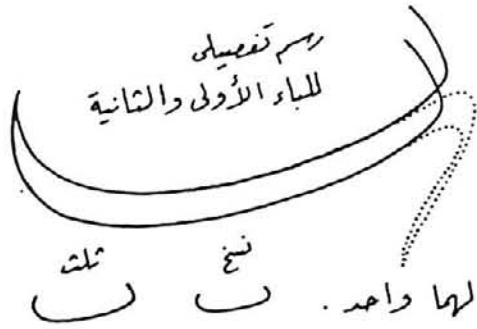 رسم تفصيلى
للباء الأولى والثانية
نسخ ثلث
لهما واحد .